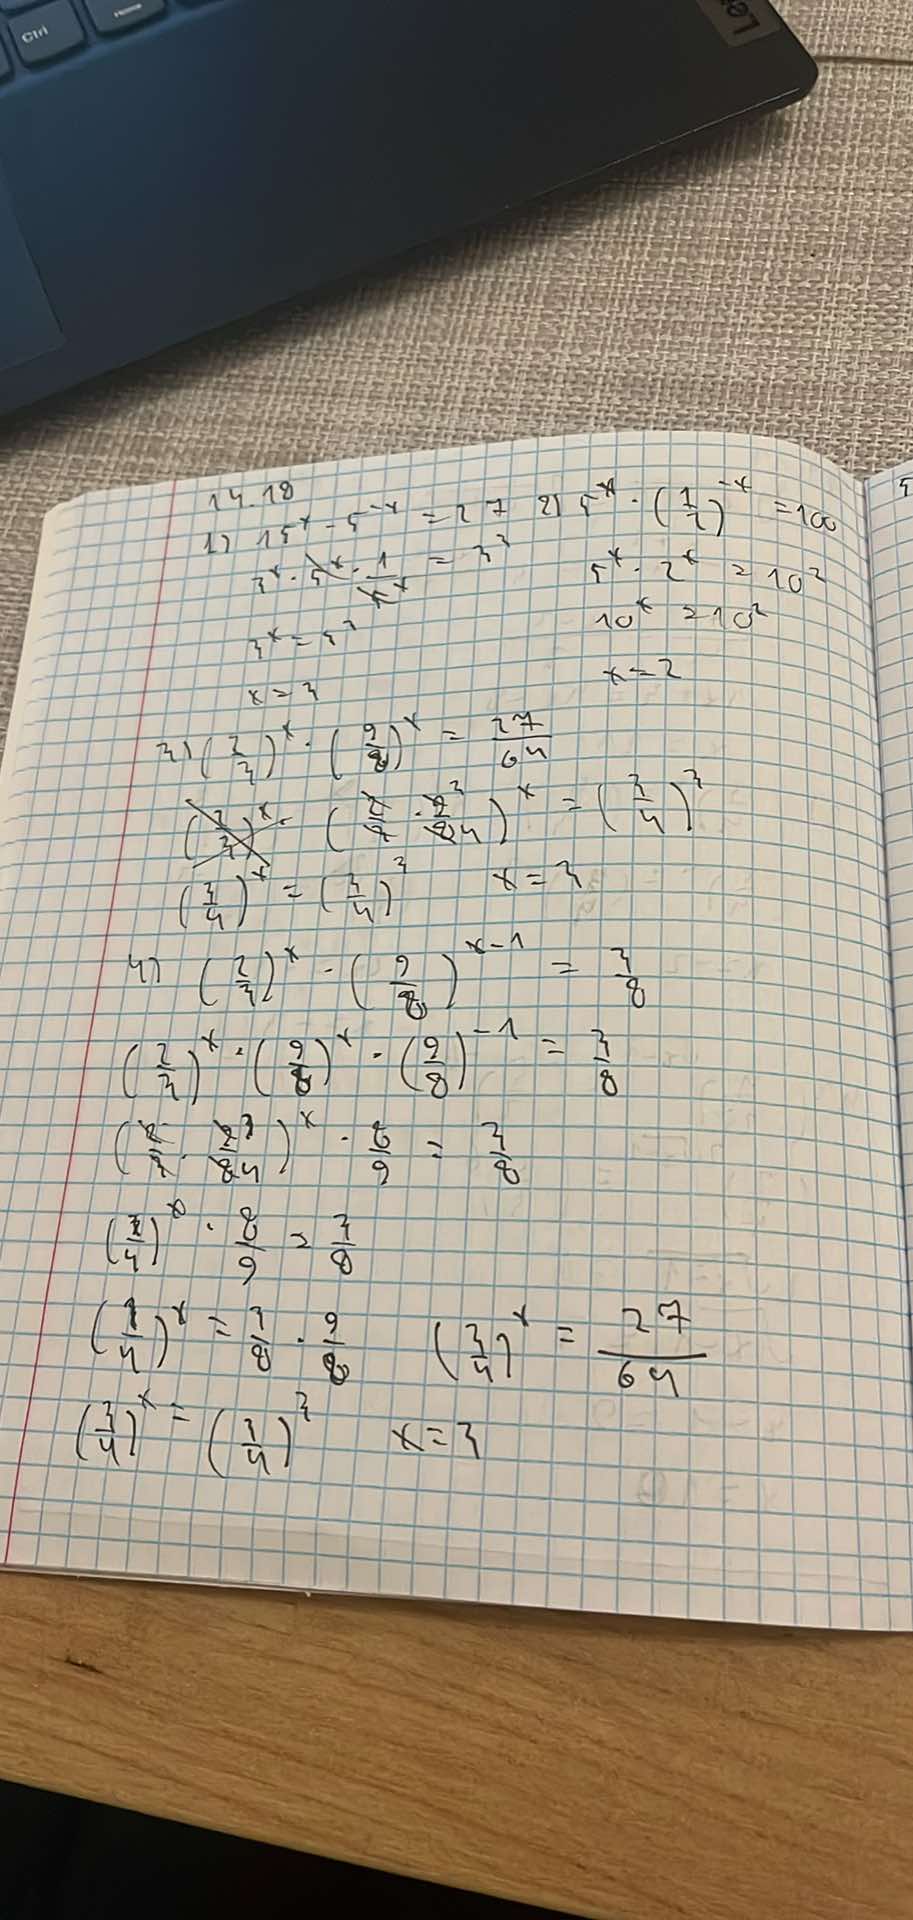 Ctrl
Home
Le
14.18
1) 15ˣ · 5⁻ˣ = 27 2) 5ˣ · (1/2)⁻ˣ = 100
3ˣ · 5ˣ · 1/5ˣ = 3³ 5ˣ · 2ˣ = 10²
3ˣ = 3³ 10ˣ = 10²
x = 3 x = 2
3) (2/3)ˣ · (9/8)ˣ = 27/64
(2/3)ˣ · (2/3 · 9³/84)ˣ = (3/4)³
(3/4)ˣ = (3/4)³ x = 3
4) (2/3)ˣ · (9/8)ˣ⁻¹ = 3/8
(2/3)ˣ · (9/8)ˣ · (9/8)⁻¹ = 3/8
(2/3 · 9³/84)ˣ · 8/9 = 3/8
(3/4)ˣ · 8/9 = 3/8
(3/4)ˣ = 3/8 · 9/8 (3/4)ˣ = 27/64
(3/4)ˣ = (3/4)³ x = 3